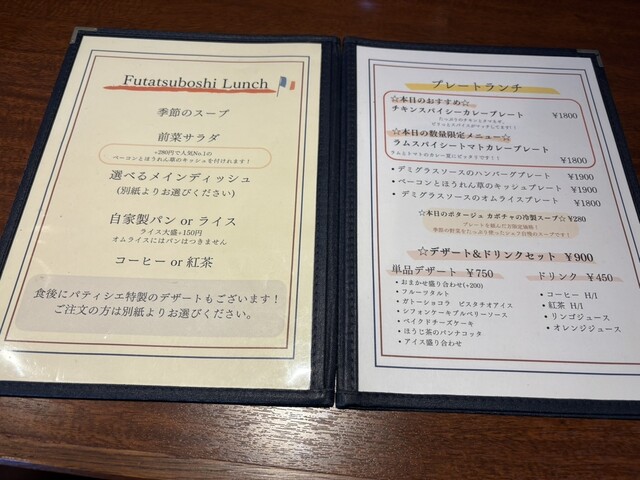 Futatsuboshi Lunch
季節のスープ
前菜サラダ
+280円で人気No.1の
ベーコンとほうれん草のキッシュを付けれます!
選べるメインディッシュ
(別紙よりお選びください)
自家製パン or ライス
ライス大盛+150円
オムライスにはパンはつきません
コーヒー or 紅茶
食後にパティシエ特製のデザートもございます!
ご注文の方は別紙よりお選びください。
プレートランチ
☆本日のおすすめ☆
チキンスパイシーカレープレート ¥1800
たっぷりのチキンと夕マネギ、
☆本日の数量限定メニュー☆
ラムスパイシートマトカレープレート
ラムとトマトのカレー麦にピッタリです!! ¥1800
• デミグラスソースのハンバーグプレート ¥1900
• ベーコンとほうれん草のキッシュプレート ¥1900
• デミグラスソースのオムライスプレート ¥1800
☆本日のポタージュ カボチャの冷製スープ☆ ¥280
プレートを頼んだ方限定価格!
季節の野菜をたっぷり使ったシェフ自慢のスープです!
☆デザート&ドリンクセット ¥900
単品デザート ¥750
• おまかせ盛り合わせ(+200)
• フルーツタルト
• ガトーショコラ ピスタチオアイス
• シフォンケーキブルーベリーソース
• ベイクドチーズケーキ
• ほうじ茶のパンナコッタ
• アイス盛り合わせ
ドリンク ¥450
• コーヒー H/I
• 紅茶 H/I
• リンゴジュース
• オレンジジュース